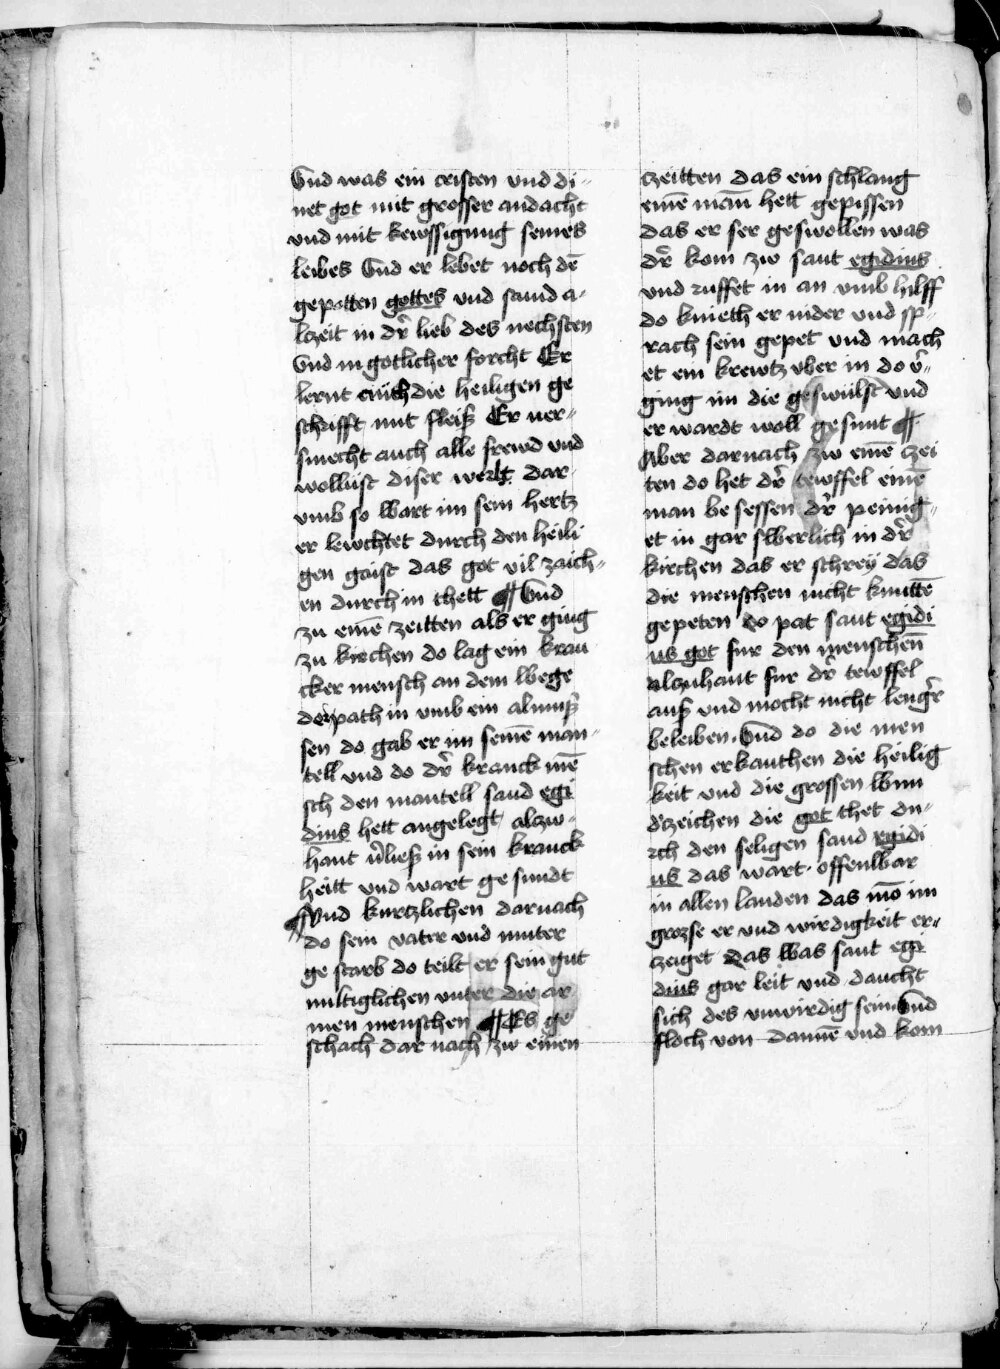 Vnd was ein cristen vnd di-
net got mit grosser andacht
vnd mit kewssigung seines
leibes Vnd er lebet noch dē
gepotten gottes vnd sand a-
lczeit in dr̄ lieb des nechsten
Vnd in gotlicher forcht Er
lernt auch die heiligen ge
schrifft mit fleiß Er uer-
smecht auch alle frewd vnd
wollust diser werlt Dar-
vmb so wart im sein hertz
er lewchtet durch den heili
gen gaist das got vil zaich-
en durch in thett ¶ Vnd
zu einē zeitten als er ging
zu kirchen do lag ein kran
cker mensch an dem wege
der path in vmb ein almuß
sen do gab er im seinē man-
tell vnd do dr̄ kranck mē
sch den mantell sand egi
dius hett angelegt alczw-
hant v̄ließ in sein kranck
heitt vnd wart gesundt
¶ Vnd kurtzlichen darnach
do sein vater vnd muter
ge starb do teilt er sein gut
miltiglichen vnter die ar
men menschen ¶ Es ge
schach dar nach zw einen
czeitten das ein schlang
einē man̄ hett gepissen
das er ser geswollen was
dr̄ kom zw sant egidius
vnd ruffet in an vmb hilff
do knieth er nider vnd sp-
rach sein gepet vnd mach
et ein krewtz vber in do v̄-
ging im die geswulst vnd
er wardt woll gesunt ¶
Aber darnach zw einē czei
ten do het dr̄ tewffel einē
man besessen dr̄ peinig-
et in gar swerlich in dr̄
kirchen das er schrey das
die menschen nicht kuntē
gepeten do pat sant egidi
us got fur den menschen̄
alczuhant fur dr̄ tewffel
auß vnd mocht nicht lengr̄
beleiben. Vnd do die men
schen erkanthen die heilig
keit vnd die grossen wun
d'czeichen die got thet du-
rch den seligen sand egidi
us das wart offenwar
in allen landen das mō im
grozse er vnd wirdigkeit er-
czeiget Das was sant egi
dius gar leit vnd daucht
sich des vnwirdig sein Vnd
floch von dannē vnd kom